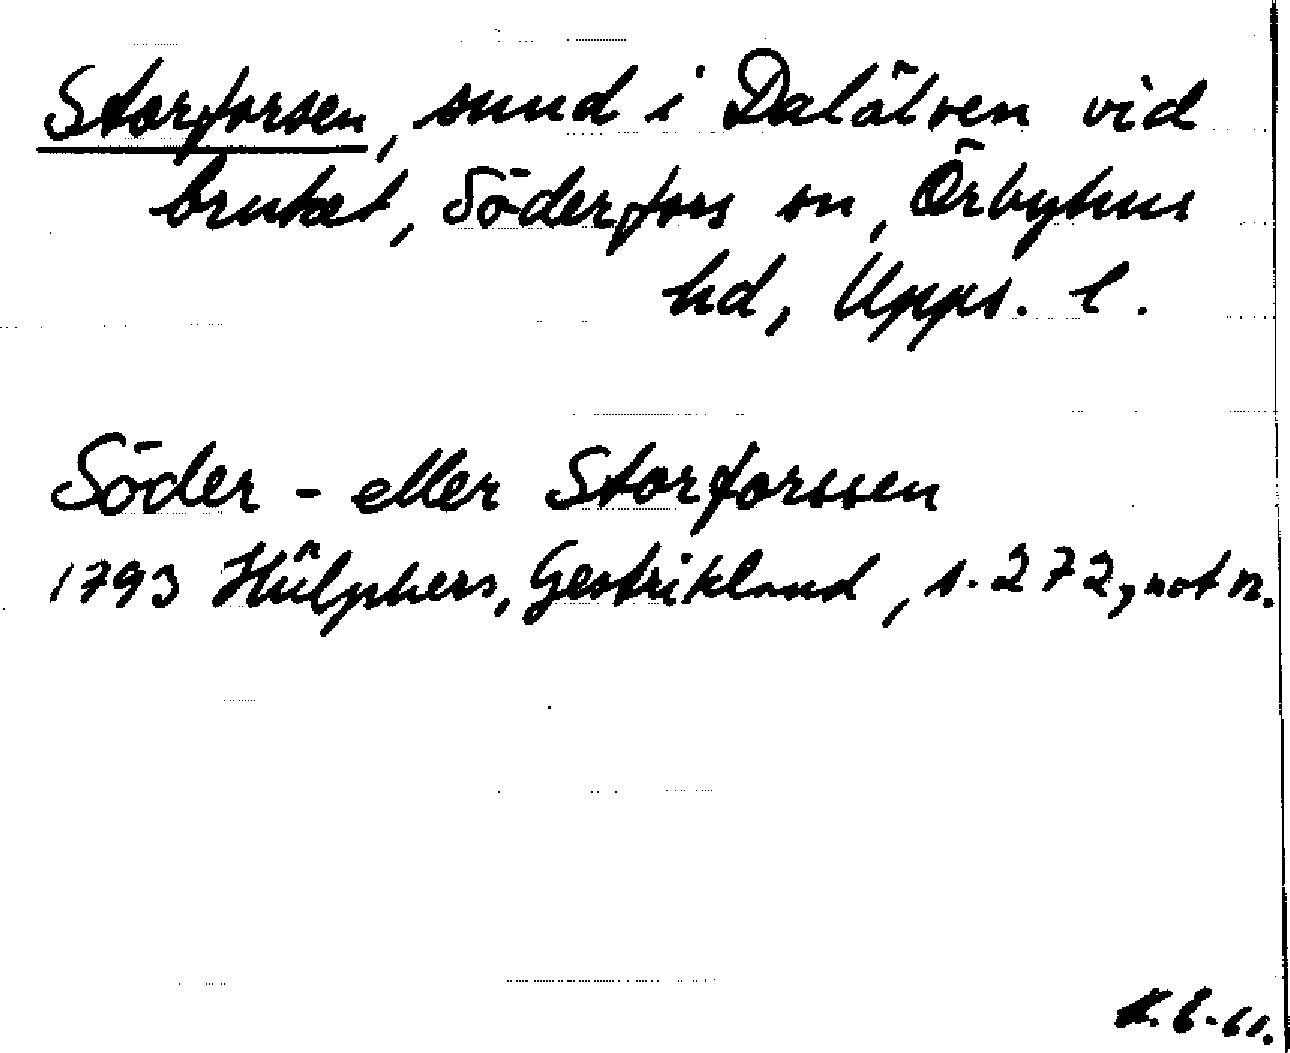 Storforsen, sund i Dalälven vid
bruket, Söderfors sn, Örbyhus
hd, Upps. l.
Söder- eller Storforssen
1793 Hülphers, Gestrikland, s. 272, not n.